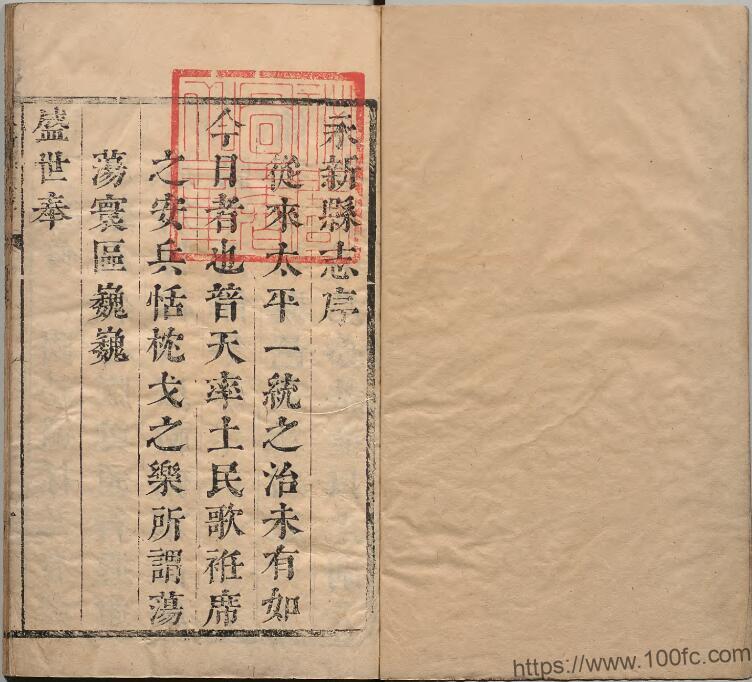 永新縣志序
從來太平一統之治未有如
今日者也普天率土民歌袵席
之安兵恬枕戈之樂所謂蕩
蕩寰區巍巍
盛世奉
https://www.100fc.com